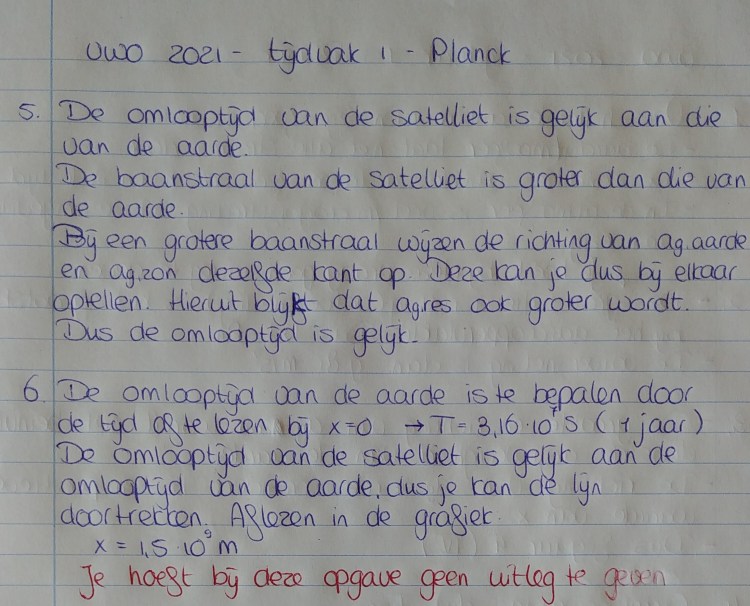 VWO 2021 - tijdvak 1 - Planck
5. De omlooptijd van de satelliet is gelijk aan die
van de aarde.
De baanstraal van de satelliet is groter dan die van
de aarde.
Bij een grotere baanstraal wijzen de richting van ag.aarde
en ag,zon dezelfde kant op. Deze kan je dus bij elkaar
optellen. Hieruit blijkt dat ag,res ook groter wordt.
Dus de omlooptijd is gelijk.
6. De omlooptijd van de aarde is te bepalen door
de tijd af te lezen bij x=0 → T = 3,16·10⁷ s (1 jaar)
De omlooptijd van de satelliet is gelijk aan de
omlooptijd van de aarde, dus je kan de lijn
doortrekken. Aflezen in de grafiek.
x = 1,5·10⁹ m
Je hoeft bij deze opgave geen uitleg te geven